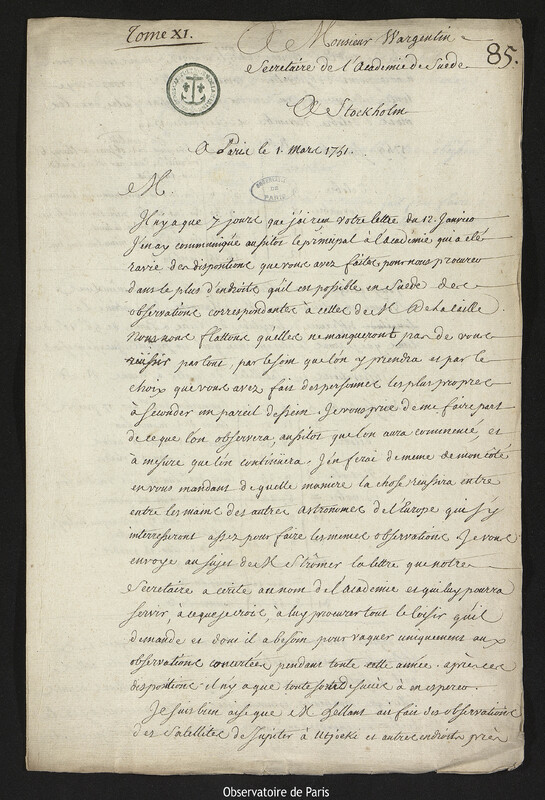 Tome XI.
A Monsieur Wargentin
85.
Secretaire de l'Academie de Suède
A Stockholm
A Paris le 1. Mars 1751.
M.
Il n'y a que 7 jours que j'ai reçu votre lettre du 12. Janvier
J'en ay communiquée aussitot le principal à l'academie qui a eté
ravie des dispositions que vous avez faites pour nous procurer
dans le plus d'endroits qu'il est possible en Suede des
observations correspondantes à celles de M. De la Caille.
Nous nous flattons qu'elles ne manqueront pas de vous
reussir par tout, par le soin que l'on y prendra et par le
choix que vous avez fait des personnes les plus propres
à seconder un pareil dessein. Je vous prie de me faire part
de ce que l'on observera, aussitot que l'on aura commencé, et
à mesure que l'on continüera. J'en ferai de meme de mon coté
en vous mandant de quelle maniere la chose reussira entre
entre les mains des autres astronomes de l'Europe qui s'y
interresseront assez pour faire les memes observations. Je vous
envoye au sujet de M. Strömer la lettre que notre
Secretaire a ecrite au nom de l'Academie et qui luy pourra
servir, à ce que je crois, à luy procurer tout le loisir qu'il
demande et dont il a besoin pour vaquer uniquement aux
observations concertées pendant toute cette année. après ces
dispositions il n'y a que toute sorte de succès à en esperer.
Je suis bien aise que M. Hellant ait fait des observations
des Satellites de Jupiter à Utsjocki et autres endroits près
OBSERVATOIRE DE PARIS
Observatoire de Paris